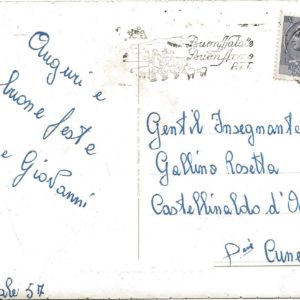 Auguri e
buone feste
e Giovanni
ale 57
Buon Natale
Buon Anno
P.T.
Gentil Insegnante
Gallino Rosetta
Castellinaldo d'
Cune